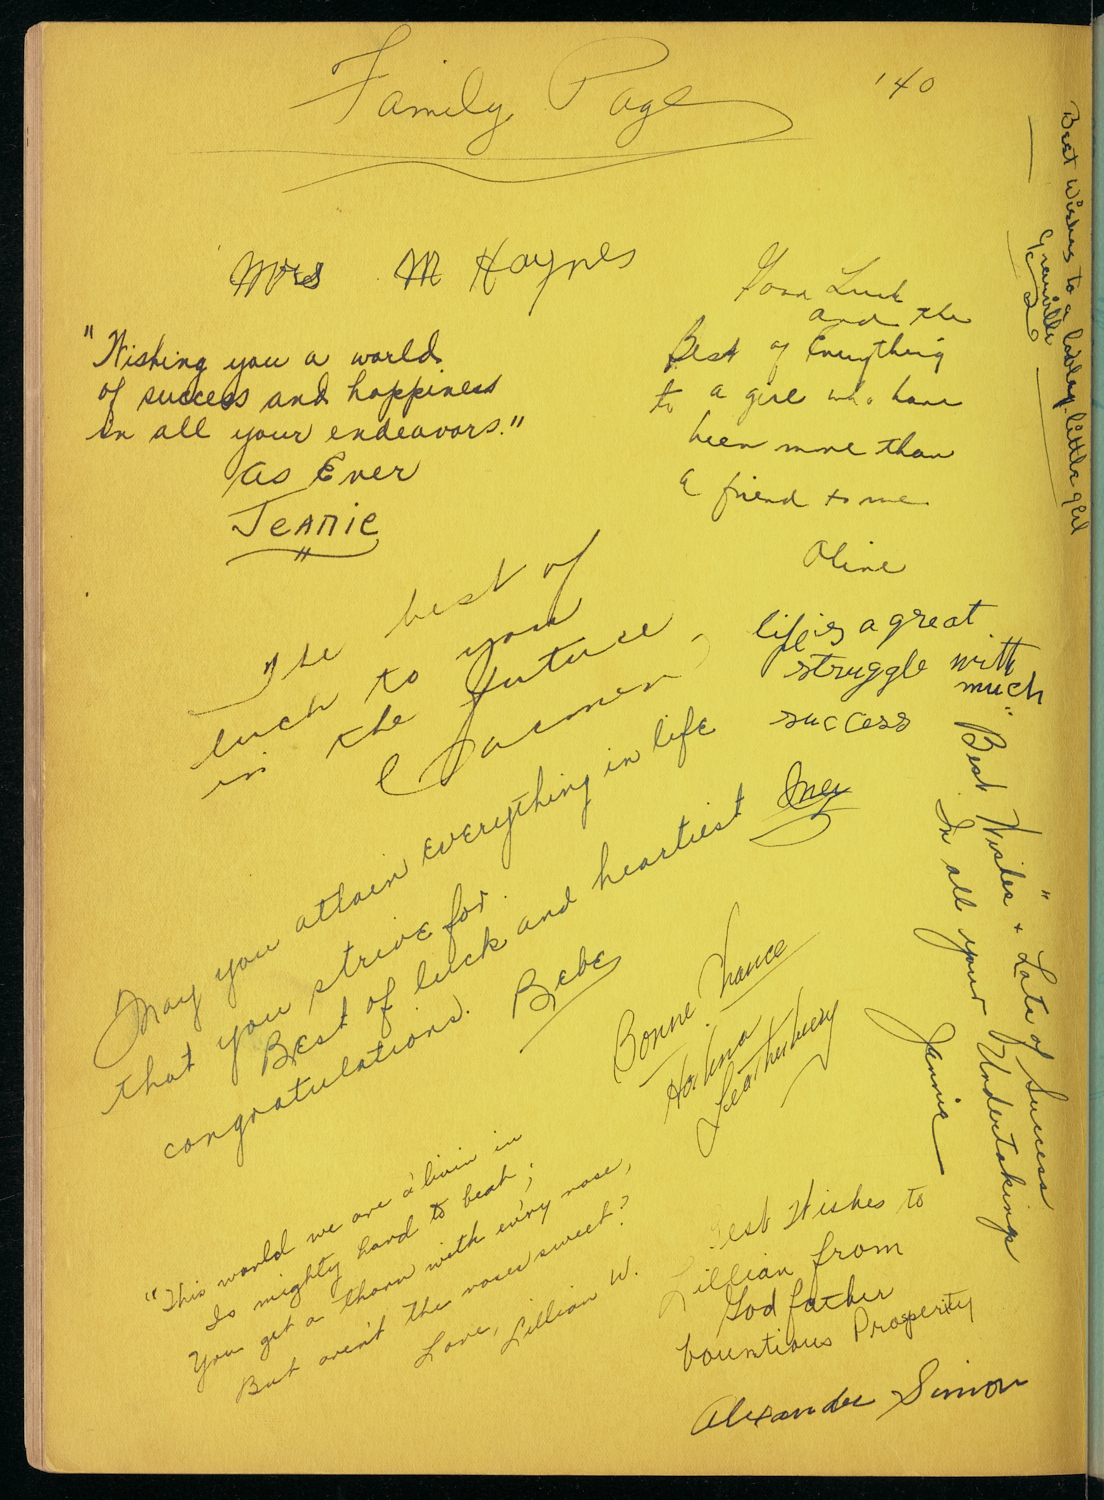 Family Page
'40
Mrs M Haynes
"Wishing you a world
of success and happiness
in all your endeavors."
As Ever
Jeanie
Good Luck
and the
Best of Everything
to a girl who have
been more than
a friend to me
Oline
Best Wishes to a lovley little girl
Granville
The best of
luck to you
in the future
Carmen
life is a great
struggle with
much
success
Inez
May you attain everything in life
that you strive for.
Best of luck and heartiest
congratulations. Bebe
Bonne Chance
Halina
Leatherberry
"Best Wishes + Lots of Success
In all your Undertakings"
Jennie
"This world we are a'livin in
Is mighty hard to beat;
You get a thorn with ev'ry rose,
But aren't the roses sweet?
Love, Lillian W.
Best Wishes to
Lillian from
God father
bountious Property
Alexander Simon